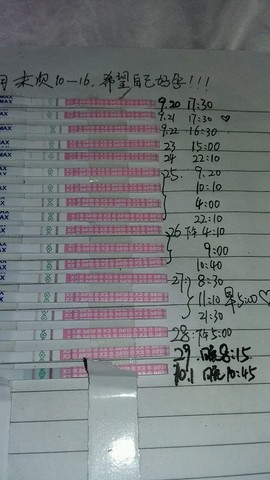 末次10-16.希望自己好孕!!!
9.20 17:30
9.21 17:30 ♡
9.22 16:30
23 15:00
24 22:10
25. 9.20
10:10
4:00
22:10
26 下午 4:10
9:00
10:40
27. 8:30
11:10 早5:00 ♡
21:30
28. 下午5:00
29. 晚8:15
10.1 晚10:45
MAX
MAX
MAX